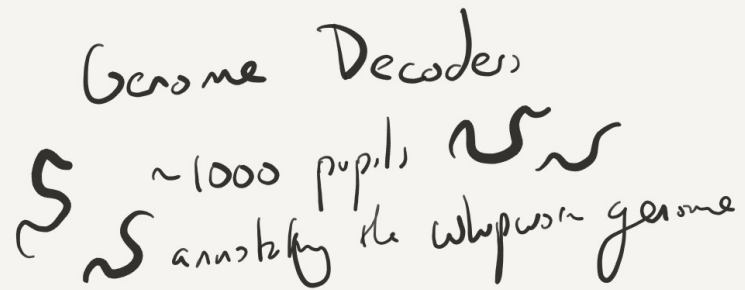 Genome Decoders
~1000 pupils
annotating the whipworm genome